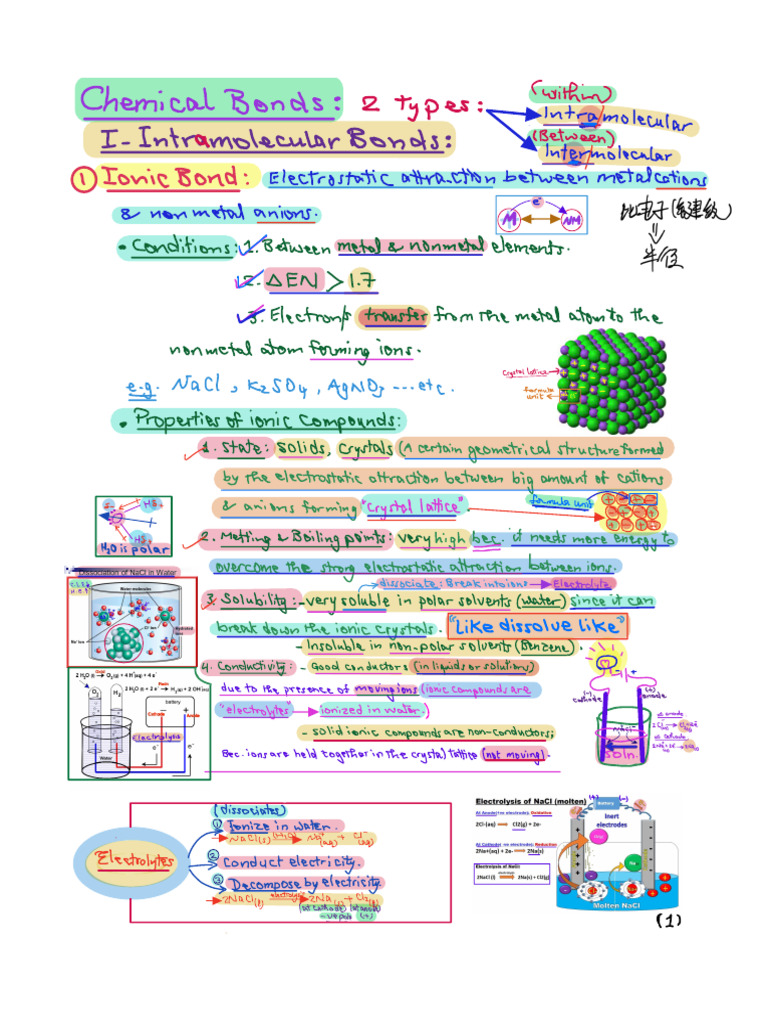 Chemical Bonds: 2 types:
(within)
Intramolecular
(Between)
Intermolecular
I-Intramolecular Bonds:
① Ionic Bond: Electrostatic attraction between metal cations
& nonmetal anions.
e⁻
M
NM
半径
• Conditions: 1. Between metal & nonmetal elements.
2. ΔEN > 1.7
3. Electron/s transfer from the metal atom to the
nonmetal atom forming ions.
e.g. NaCl, K2SO4, AgNO3 ....etc.
Crystal lattice
formula
unit
• Properties of ionic Compounds:
1. State: Solids, Crystals (A certain geometrical structure formed
by the electrostatic attraction between big amount of cations
& anions forming "crystal lattice".
formula unit
H2O is polar
2. Melting & Boiling points: very high bec. it needs more energy to
overcome the strong electrostatic attraction between ions.
Dissociation of NaCl in Water
Water molecules
Na⁺ ion
Cl⁻ ion
Hydrated
ions
dissociate: Break into ions → Electrolyte
3. Solubility: - very soluble in polar solvents (water) since it can
break down the ionic crystals. "Like dissolve like"
- Insoluble in non-polar solvents (Benzene).
4. Conductivity: - Good conductors (in liquids or solutions)
due to the presence of moving ions (ionic compounds are
"electrolytes" → ionized in water.)
- solid ionic compounds are non-conductors;
Bec. ions are held together in the crystal lattice (not moving).
2 H2O → O2(g) + 4 H⁺(aq) + 4 e⁻
2 H2O + 2 e⁻ → H2(g) + 2 OH⁻(aq)
O2
H2
battery
Cathode
Anode
Electrolysis
e⁻
e⁻
Water
(-)
cathode
(+)
anode
soln.
(Dissociates)
Electrolytes
① Ionize in water.
NaCl(s) (H2O) → Na⁺(aq) + Cl⁻(aq)
② Conduct electricity.
③ Decompose by electricity.
2NaCl(l) electrolysis → 2Na(s) + Cl2(g)
(at cathode) (at anode)
-ve pole (+)
Electrolysis of NaCl (molten)
At Anode(+ve electrode): Oxidation
2Cl-(aq) → Cl2(g) + 2e-
At Cathode( -ve electrode): Reduction
2Na+(aq) + 2e- → 2Na(s)
Electrolysis of NaCl:
2NaCl (l) → 2Na(s) + Cl2(g)
(+)
(-)
Battery
Inert
electrodes
Molten NaCl
(1)